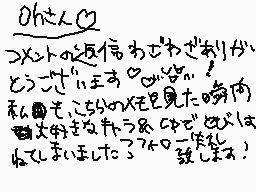 Ohさん♡
コメントの返信わざわざありが
とうございます♡!
私も、こちらのメモを見た瞬間
大好きなキャラ&でとびは
ねてしまいました フォロー失礼
致します!